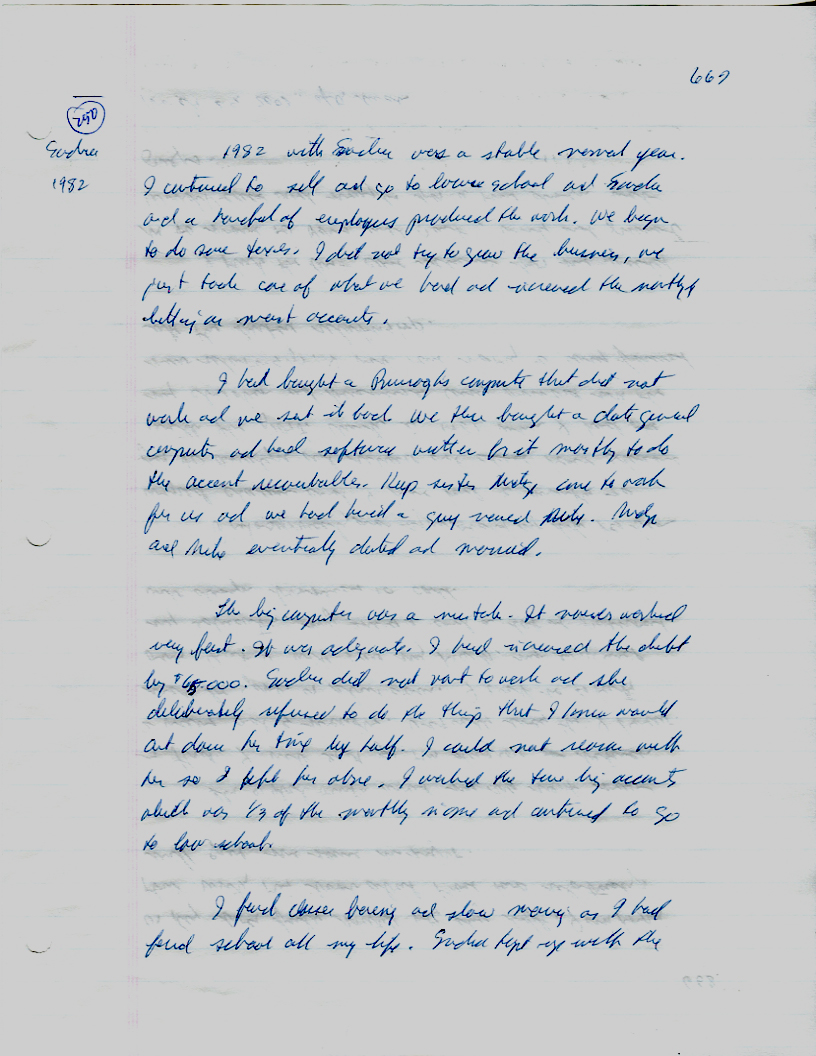 669
250
Sandra
1982
1982 with Sandra was a stable normal year.
I continued to sell and go to law school and Sandra
and a handful of employees produced the work. We began
to do some taxes. I did not try to grow the business, we
just took care of what we had and increased the monthly
billing on most accounts.
I had bought a Burroughs computer that did not
work and we sent it back. We then bought a data general
computer and had software written for it mostly to do
the account receivables. sister Midge came to work
for us and we had hired a guy named Mike. Midge
and Mike eventually dated and married.
The big computer was a mistake. It never worked
very fast. It was adequate. I had increased the debt
by $65,000. Sandra did not want to work and she
deliberately refused to do the things that I knew would
cut down her time by half. I could not reason with
her so I left her alone. I worked the two big accounts
which was 1/3 of the monthly income and continued to go
to law school.
I found classes boring and slow moving as I had
found school all my life. Sandra kept up with the